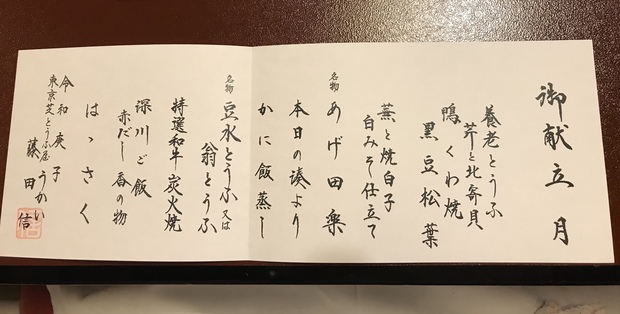 御献立 月
養老とうふ
芹と北寄貝
鴨くわ焼
黒豆松葉
蕪と焼白子
白みそ仕立て
名物 あげ田楽
本日の湊より
かに飯蒸し
名物 豆水とうふ 又は
翁とうふ
特選和牛炭火焼
深川ご飯
赤だし 香の物
はっさく
令和庚子
東京芝とうふ屋うかい
藤田 信